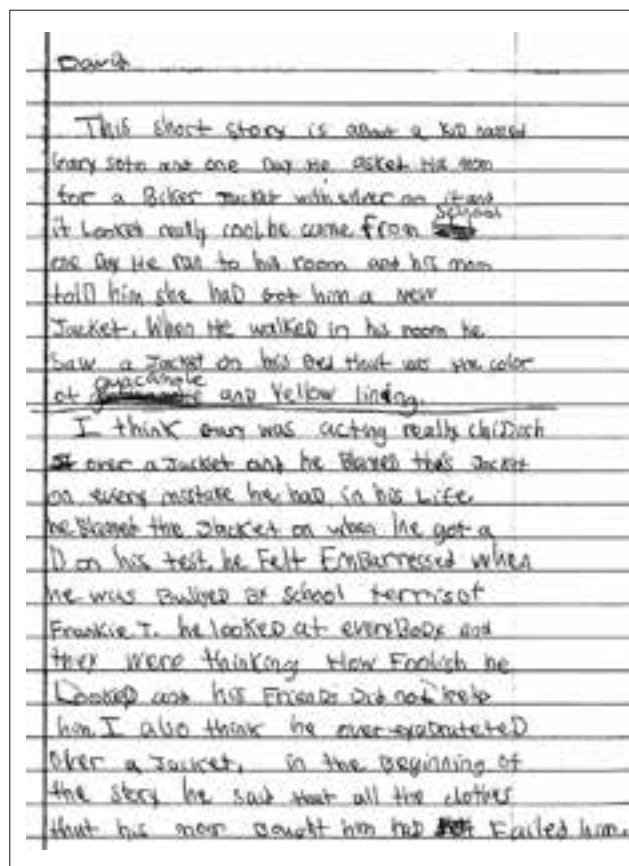 David
This short story is about a KiD named
Gary soto and one Day He asked His mom
for a Biker Jacket with silver on it and
it Looked really cool. he came From school
one Day He ran to his room and his mom
tolD him she haD got him a new
Jacket. When He walkeD in his room he
Saw a Jacket on his BeD that was the color
of and Yellow lining.
I think Gary was acting really chilDish
over a Jacket and he Blamed this Jacket
on every mistake he haD in his Life.
he Blamed the Jacket on when he got a
D on his test. he Felt EmBarressed when
he was Bullyed By School terrisot
Frankie T. he looked at everyBody and
they were thinking How Foolish he
LookeD and his Friends Did not help
him. I also think he over
Over a Jacket, in the Beginning of
the story he said that all the clothes
that his mom Bought him haD Failed him.